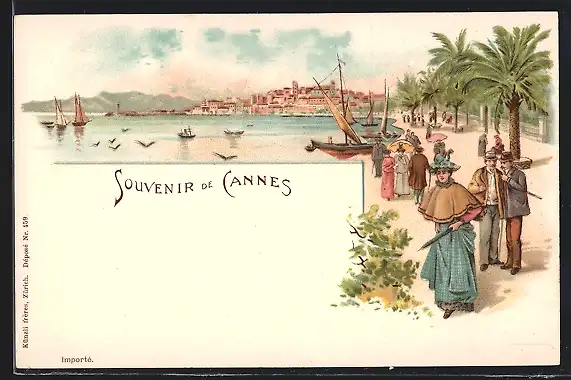 SOUVENIR DE CANNES
Künzli frères, Zürich. Déposé Nr. 459
Importé.